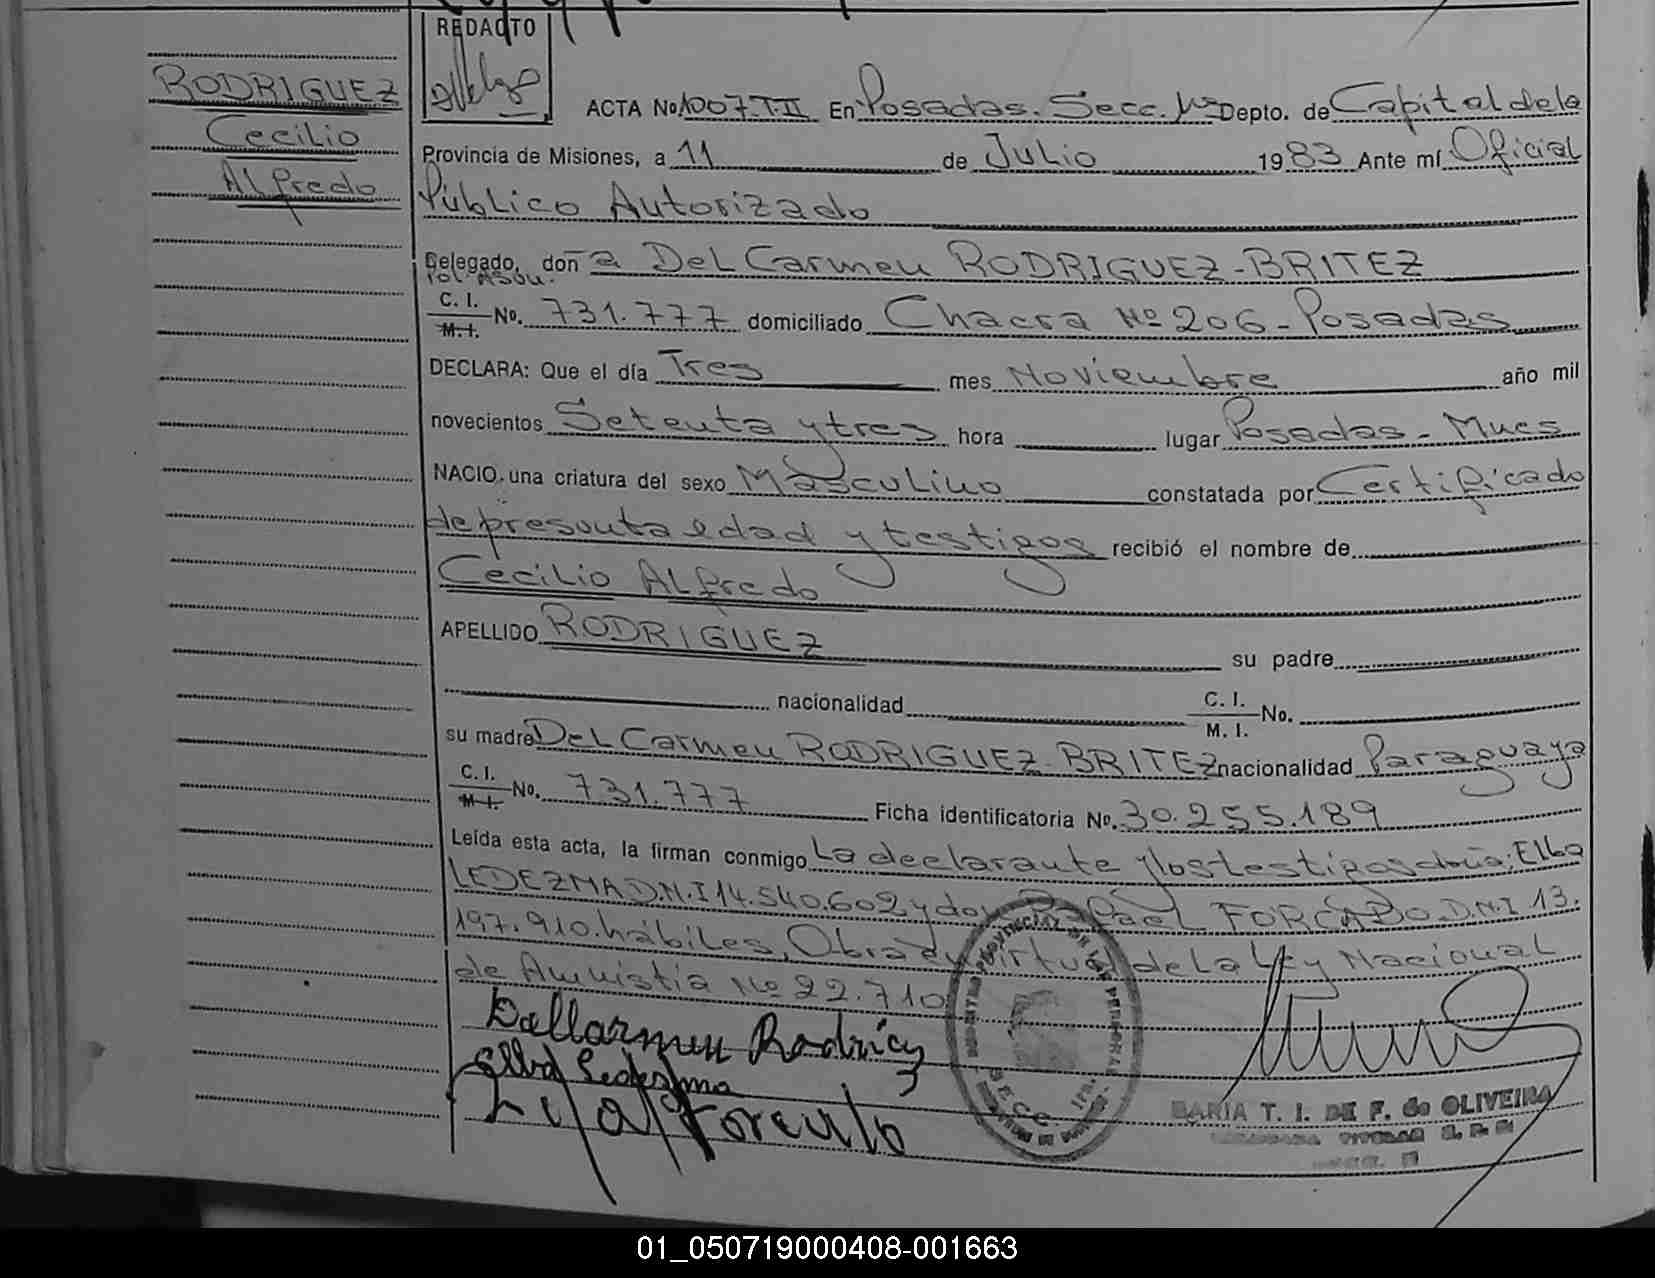 REDACTO
RODRIGUEZ
Cecilio
Alfredo
ACTA No. 1007.T.II En Posadas. Secc. 1ra Depto. de Capital de la
Provincia de Misiones, a 11 de Julio 1983 Ante mí Oficial
Público Autorizado
Delegado, don a Del Carmen RODRIGUEZ-BRITEZ
Pol. Asou.
C. I. M. I. No. 731.777 domiciliado Chacra Nº 206-Posadas
DECLARA: Que el día Tres mes Noviembre año mil
novecientos Setenta y tres hora lugar Posadas - Mnes
NACIO, una criatura del sexo Masculino constatada por Certificado
de presunta edad y testigos recibió el nombre de
Cecilio Alfredo
APELLIDO RODRIGUEZ su padre
nacionalidad C. I. M. I. No.
su madre Del Carmen RODRIGUEZ-BRITEZ nacionalidad Paraguaya
C. I. M. I. No. 731.777 Ficha identificatoria No. 30.255.189
Leída esta acta, la firman conmigo La declarante y los testigos doña: Elba
LEDEZMA D.N.I 14.540.602 y don Rafael FORCADO D.N.I 13.
197.910. hábiles, Obra en virtud de la Ley Nacional
de Amnistia Nº 22.710
Delcarmen Rodriguez
Elba Ledezma
MARIA T. I. DE F. de OLIVEIRA
01_050719000408-001663